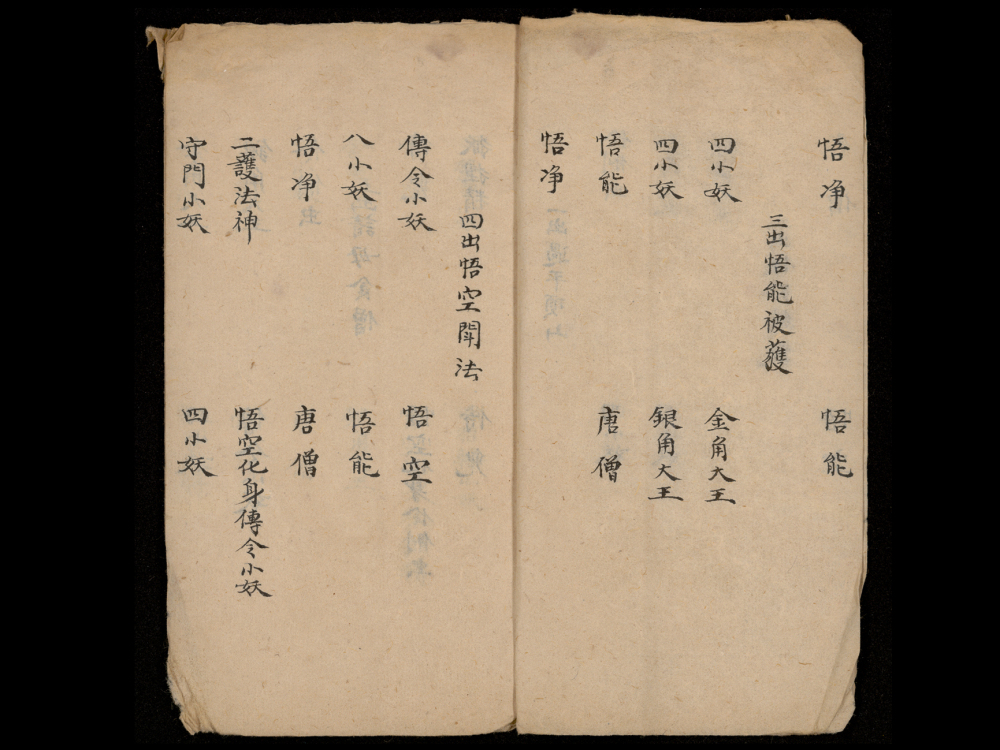 悟净 悟能
三出悟能被獲
四小妖 金角大王
四小妖 銀角大王
悟能 唐僧
悟净
四出悟空鬪法
傳令小妖 悟空
八小妖 悟能
悟净 唐僧
二護法神 悟空化身傳令小妖
守門小妖 四小妖